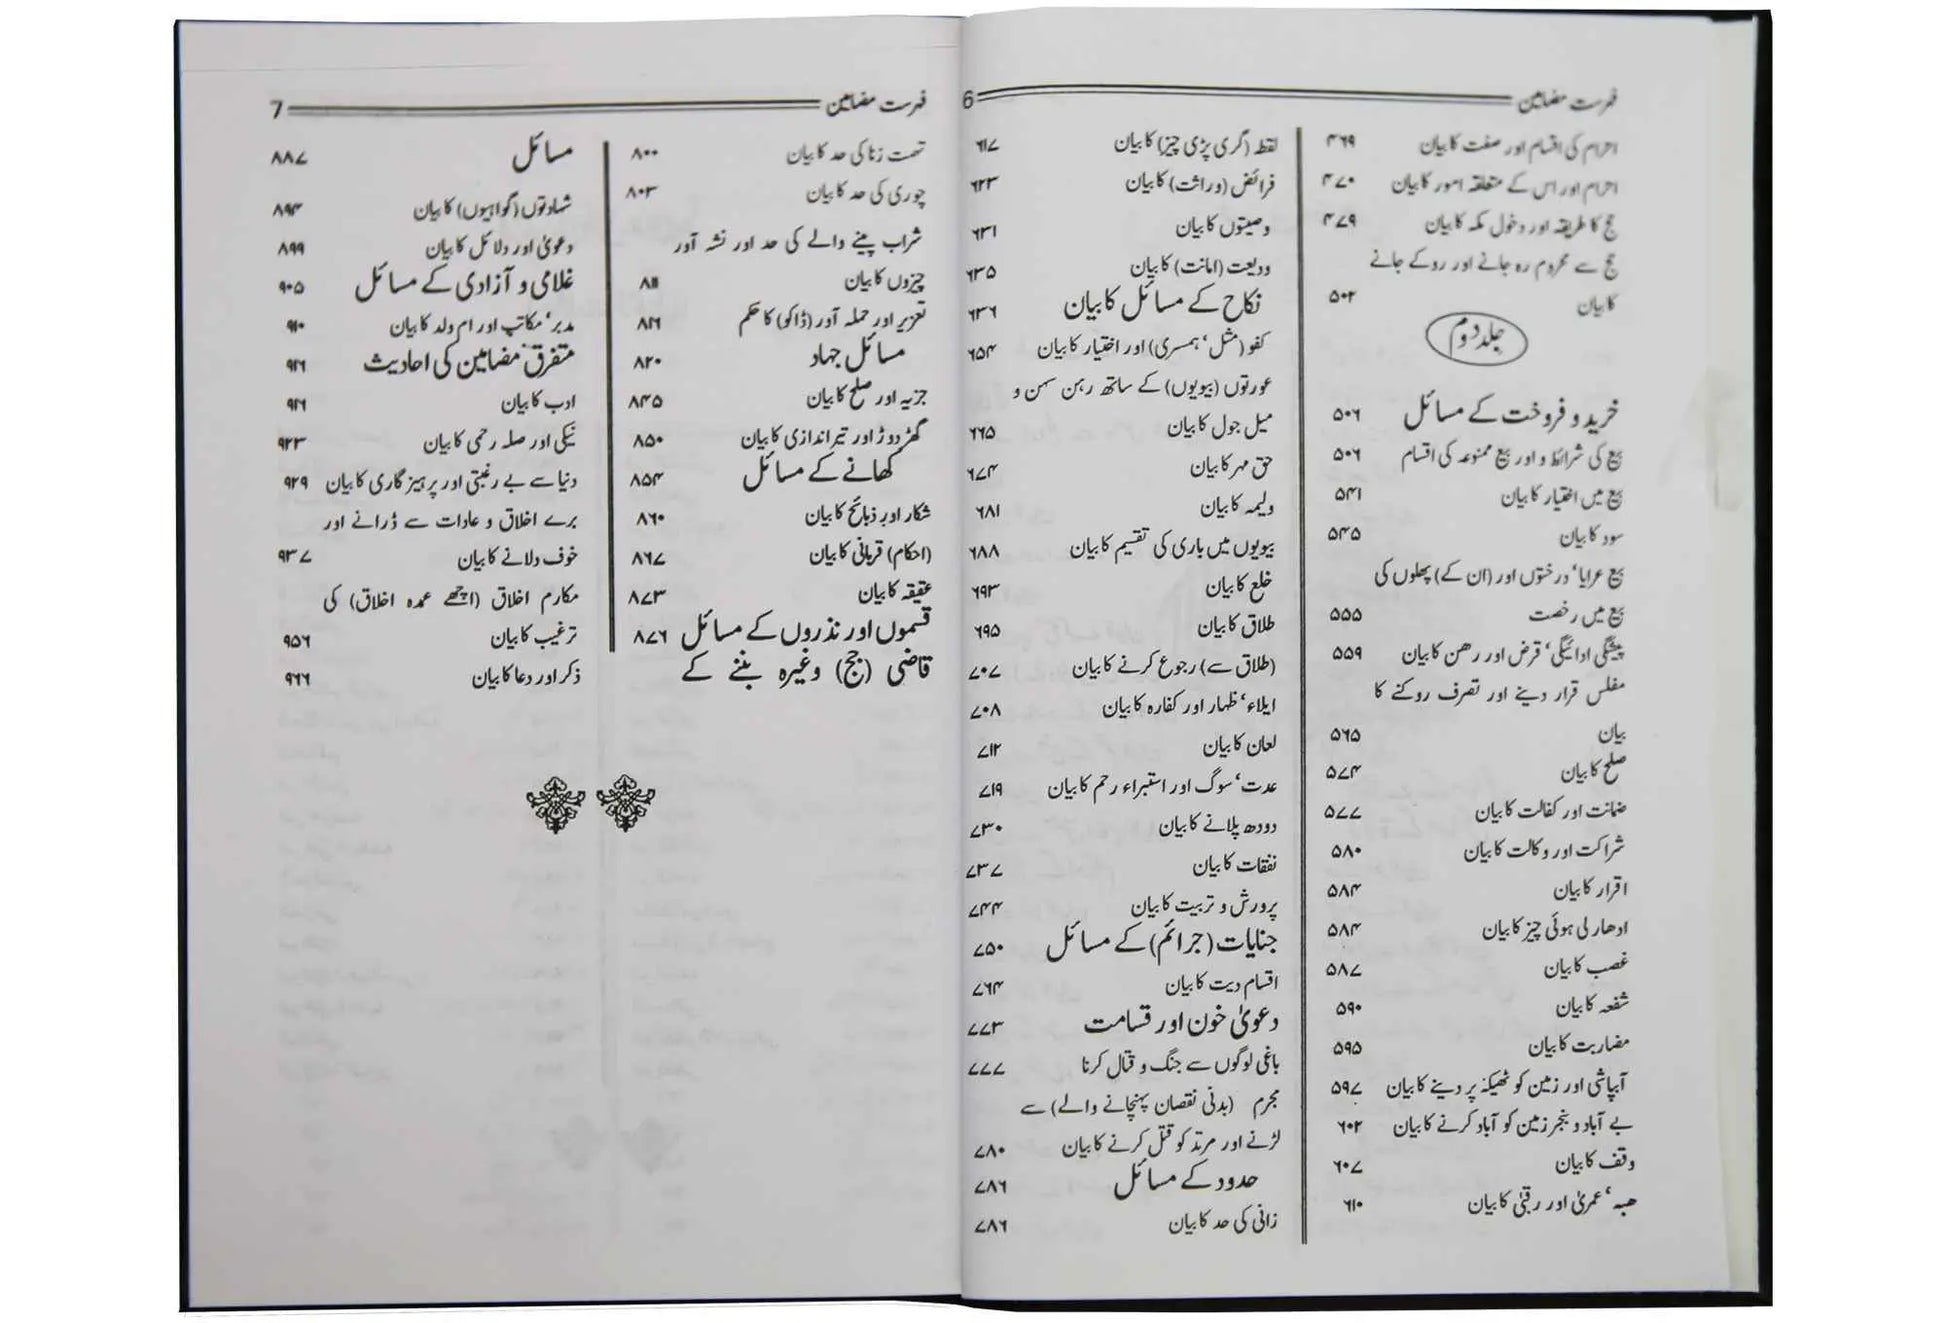 فہرست مضامین 6
احرام کی اقسام اور صفت کا بیان ۴۶۹
احرام اور اس کے متعلقہ امور کا بیان ۴۷۰
حج کا طریقہ اور دخول مکہ کا بیان ۴۷۹
حج سے محروم رہ جانے اور روکے جانے
کا بیان ۵۰۲
جلد دوم
خرید و فروخت کے مسائل ۵۰۶
بیع کی شرائط و اور بیع ممنوعہ کی اقسام ۵۰۶
بیع میں اختیار کا بیان ۵۴۱
سود کا بیان ۵۴۵
بیع عرایا، درختوں اور (ان کے) پھلوں کی
بیع میں رخصت ۵۵۵
پیشگی ادائیگی، قرض اور رھن کا بیان ۵۵۹
مفلس قرار دینے اور تصرف روکنے کا
بیان ۵۶۵
صلح کا بیان ۵۷۴
ضمانت اور کفالت کا بیان ۵۷۷
شراکت اور وکالت کا بیان ۵۸۰
اقرار کا بیان ۵۸۴
ادھار لی ہوئی چیز کا بیان ۵۸۴
غصب کا بیان ۵۸۷
شفعہ کا بیان ۵۹۰
مضاربت کا بیان ۵۹۵
آبپاشی اور زمین کو ٹھیکہ پر دینے کا بیان ۵۹۷
بے آباد و بنجر زمین کو آباد کرنے کا بیان ۶۰۲
وقف کا بیان ۶۰۷
ھبہ، عمریٰ اور رقبیٰ کا بیان ۶۱۰
لقطہ (گری پڑی چیز) کا بیان ۶۱۷
فرائض (وراثت) کا بیان ۶۲۳
وصیتوں کا بیان ۶۳۱
ودیعت (امانت) کا بیان ۶۳۵
نکاح کے مسائل کا بیان ۶۳۶
کفو (مثل، ہمسری) اور اختیار کا بیان ۶۵۴
عورتوں (بیویوں) کے ساتھ رہن سہن و
میل جول کا بیان ۶۶۵
حق مہر کا بیان ۶۷۴
ولیمہ کا بیان ۶۸۱
بیویوں میں باری کی تقسیم کا بیان ۶۸۸
خلع کا بیان ۶۹۳
طلاق کا بیان ۶۹۵
(طلاق سے) رجوع کرنے کا بیان ۷۰۷
ایلاء، ظہار اور کفارہ کا بیان ۷۰۸
لعان کا بیان ۷۱۲
عدت، سوگ اور استبراء رحم کا بیان ۷۱۹
دودھ پلانے کا بیان ۷۳۰
نفقات کا بیان ۷۳۷
پرورش و تربیت کا بیان ۷۴۴
جنایات (جرائم) کے مسائل ۷۵۰
اقسام دیت کا بیان ۷۶۴
دعویٰ خون اور قسامت ۷۷۳
باغی لوگوں سے جنگ و قتال کرنا ۷۷۷
مجرم (بدنی نقصان پہنچانے والے) سے
لڑنے اور مرتد کو قتل کرنے کا بیان ۷۸۰
حدود کے مسائل ۷۸۶
زانی کی حد کا بیان ۷۸۶
فہرست مضامین 7
تہمت زنا کی حد کا بیان ۸۰۰
چوری کی حد کا بیان ۸۰۳
شراب پینے والے کی حد اور نشہ آور
چیزوں کا بیان ۸۱۱
تعزیر اور حملہ آور (ڈاکو) کا حکم ۸۱۶
مسائل جہاد ۸۲۰
جزیہ اور صلح کا بیان ۸۴۵
گھڑ دوڑ اور تیر اندازی کا بیان ۸۵۰
کھانے کے مسائل ۸۵۴
شکار اور ذبائح کا بیان ۸۶۰
(احکام) قربانی کا بیان ۸۶۷
عقیقہ کا بیان ۸۷۳
قسموں اور نذروں کے مسائل ۸۷۶
قاضی (جج) وغیرہ بننے کے
مسائل ۸۸۷
شہادتوں (گواہیوں) کا بیان ۸۹۴
دعویٰ اور دلائل کا بیان ۸۹۹
غلامی و آزادی کے مسائل ۹۰۵
مدبر، مکاتب اور ام ولد کا بیان ۹۱۰
متفرق مضامین کی احادیث ۹۱۶
ادب کا بیان ۹۱۶
نیکی اور صلہ رحمی کا بیان ۹۲۳
دنیا سے بے رغبتی اور پرہیز گاری کا بیان ۹۲۹
برے اخلاق و عادات سے ڈرانے اور
خوف دلانے کا بیان ۹۳۷
مکارم اخلاق (اچھے عمدہ اخلاق) کی
ترغیب کا بیان ۹۵۶
ذکر اور دعا کا بیان ۹۶۶